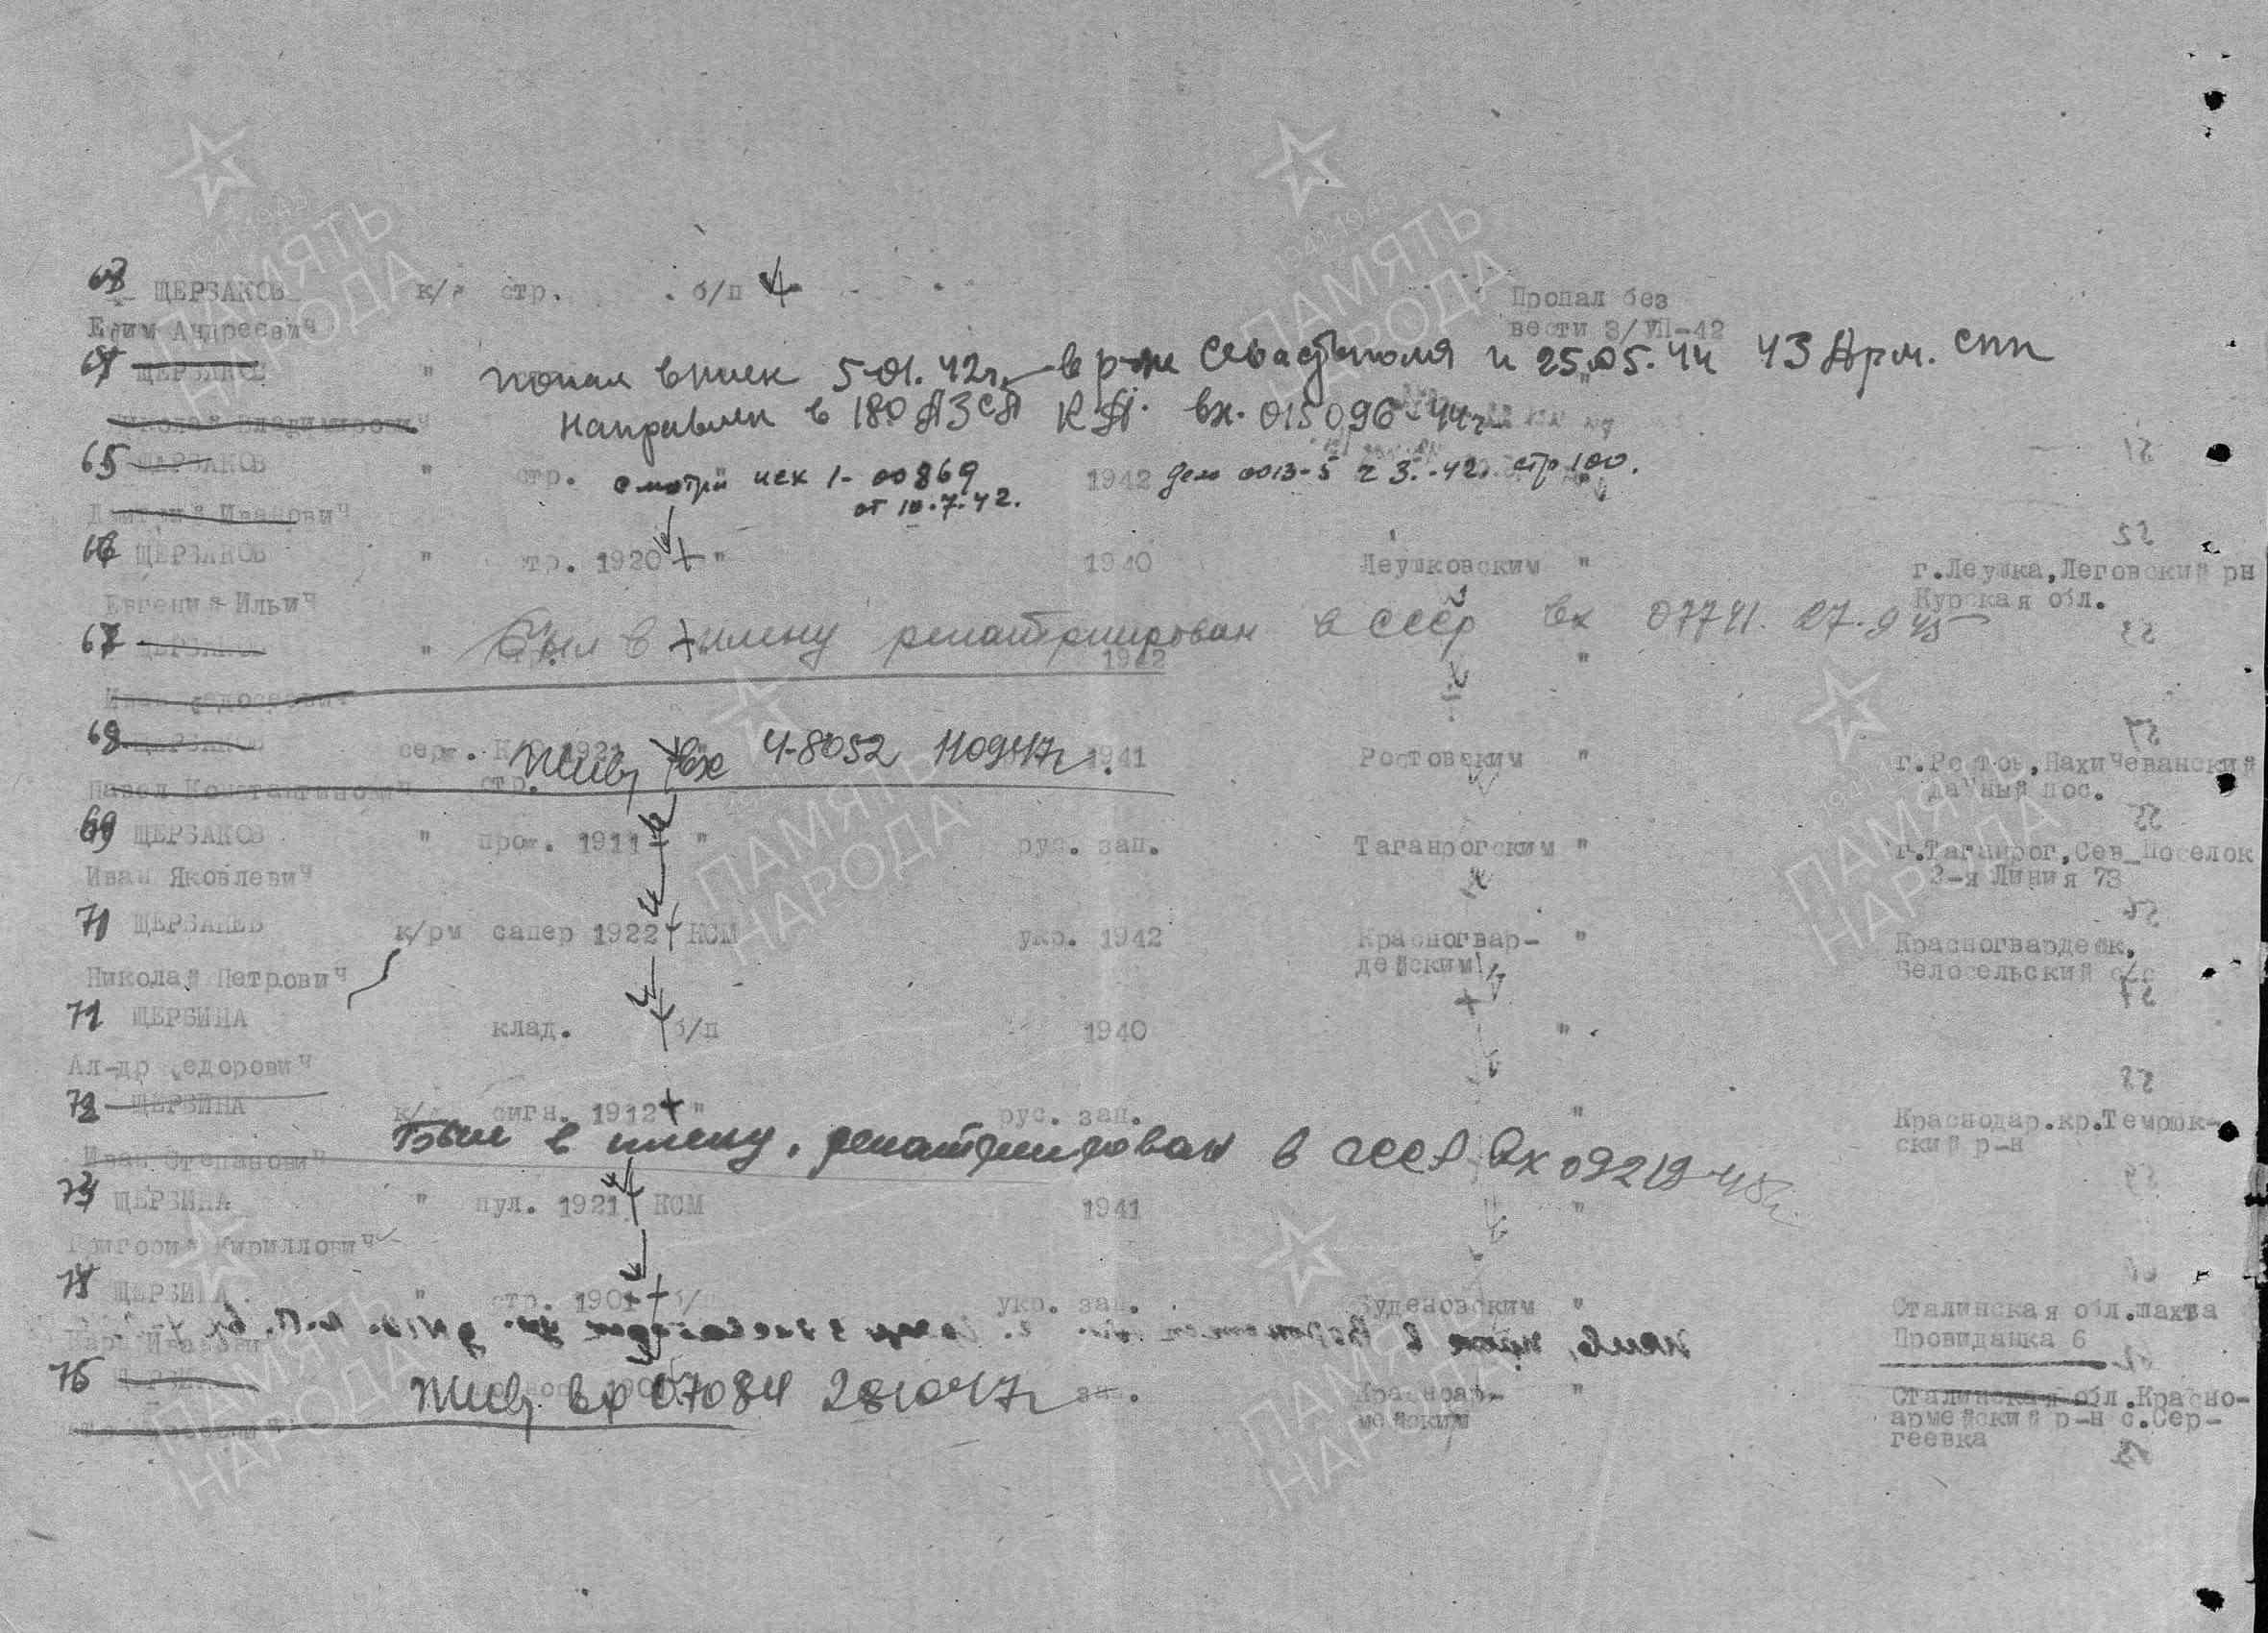 63 ЩЕРБАКОВ к/ стр. б/п Пропал без
Ефим Андреевич вести 3/VII-42
64 ЩЕРБАКОВ " попал в плен 5-01.42г. в р-не Севастополя и 25.05.44 43 Арм. СПП
Николай Владимирович направлен в 180 АЗСП КА. вх. 015096-44г
65 ЩЕРБАКОВ " стр. смотри исх 1-00869 1942 дело 0013-5 ч 3.-42. стр 100.
Дмитрий Иванович от 10.7.42.
66 ЩЕРБАКОВ " стр. 1920 " 1940 Леушковским " г.Леушка,Леговский рн
Евгений Ильич Курская обл.
67 ЩЕРБАКОВ " Был в плену репатриирован в СССР вх 07741. 27.9 45
1942 "
Иван Федосеевич
68 ЩЕРБАКОВ серж. 1921 Жив, вх 4-8052 110947г. 1941 Ростовским " г.Ростов,Нахичеванский
Павел Константинович стр. дачный пос.
69 ЩЕРБАКОВ " прож. 1911 " рус. зап. Таганрогским " г.Таганрог,Сев_Поселок
Иван Яковлевич 3-я Линия 73
70 ЩЕРБАНЕВ к/рм сапер 1922 КСМ укр. 1942 Красногвар- " Красногвардейк,
Николай Петрович дейским Белосельский
71 ЩЕРБИНА клад. б/п 1940 "
Ал-др Федорович
72 ЩЕРБИНА к/ сигн. 1912 " рус. зап. " Краснодар.кр.Темрюк-
Иван Степанович Был в плену, репатриирован в СССР Вх 09219-45г. ский р-н
73 ЩЕРБИНА " пул. 1921 КСМ 1941 "
Григорий Кириллович
74 ЩЕРБИНА " стр. 1901 б/п укр. зап. Буденовским " Сталинская обл.шахта
Марк Иванович Провиданка 6
75 ЩЕРБИНА Жив, вх 07084 281047г зап. Красноар- " Сталинская обл.Красно-
мейским армейский р-н с.Сер-
геевка
ПАМЯТЬ
НАРОДА
1941-1945